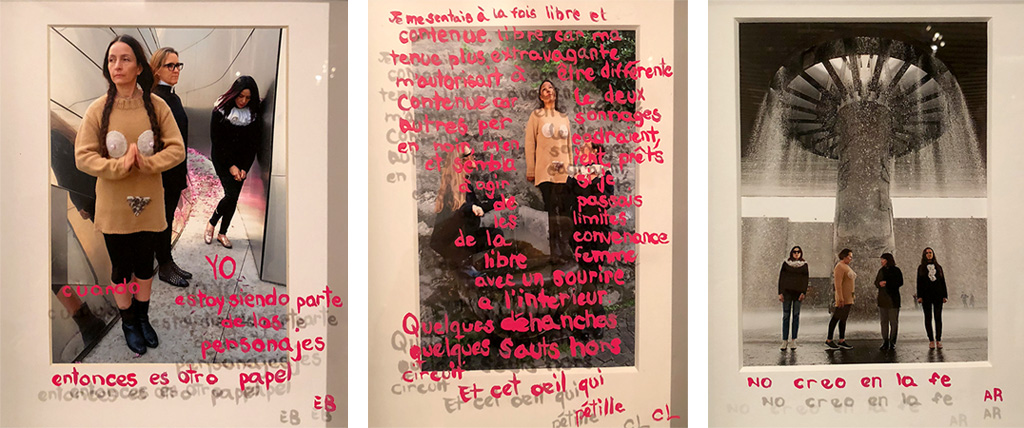 YO
cuando estoy siendo parte
de los
personajes
entonces es otro papel
EB
Je me sentais à la fois libre et
contenue libre, car ma
tenue plus extravagante
m'autorisait à être différente
Contenue car le deux
autres per sonnages
en noir, m'en cadraient,
et semblo ient prêts
à agir si je
de passais
les limites
de la convenance
libre femme
avec un sourire
a l'interieur
Quelques déhanches
quelques sauts hors
circuit
Et cet oeil qui
pétille CL
NO creo en la fe
AR